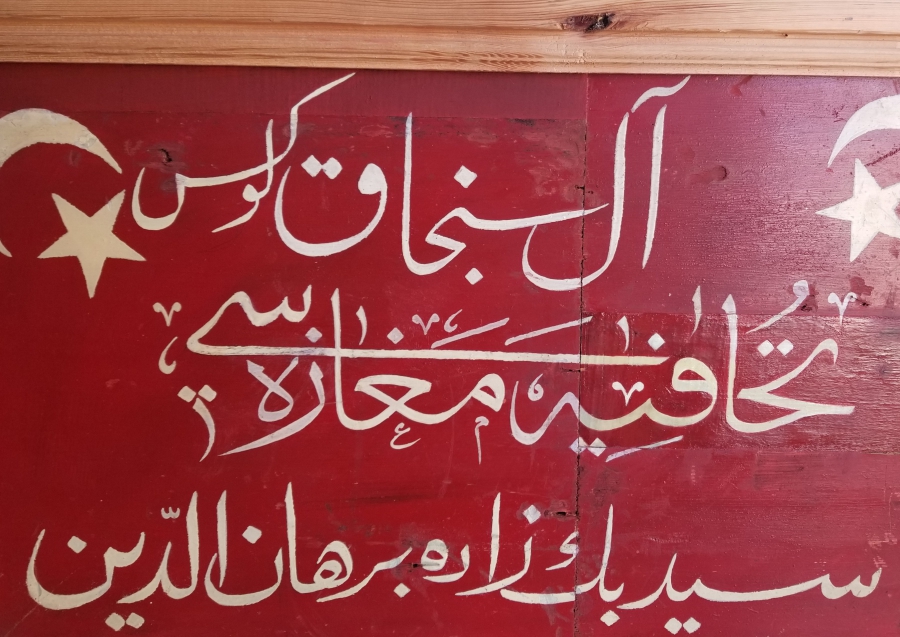 آل سنجاق لوكس
تُحافيه مغازه سی
سيد بك زاده برهان الدّين